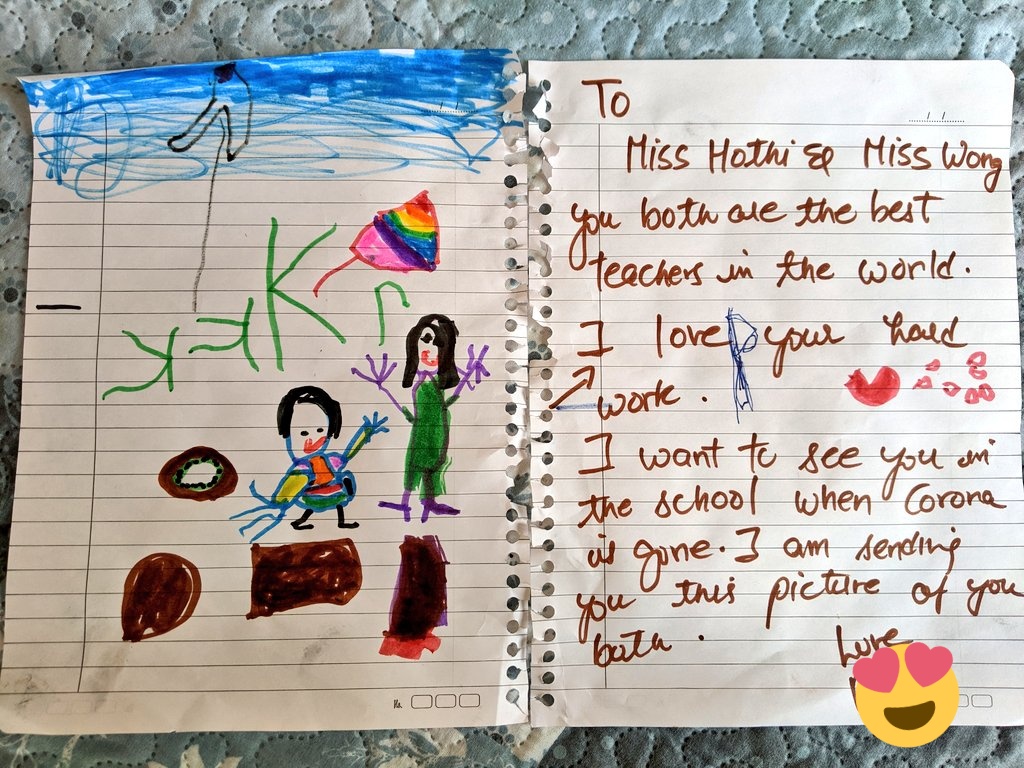 To
Miss Hothi & Miss Wong
you both are the best
teachers in the world.
I love your hard
work.
I want to see you in
the school when Corona
is gone. I am sending
you this picture of you
both.
Love